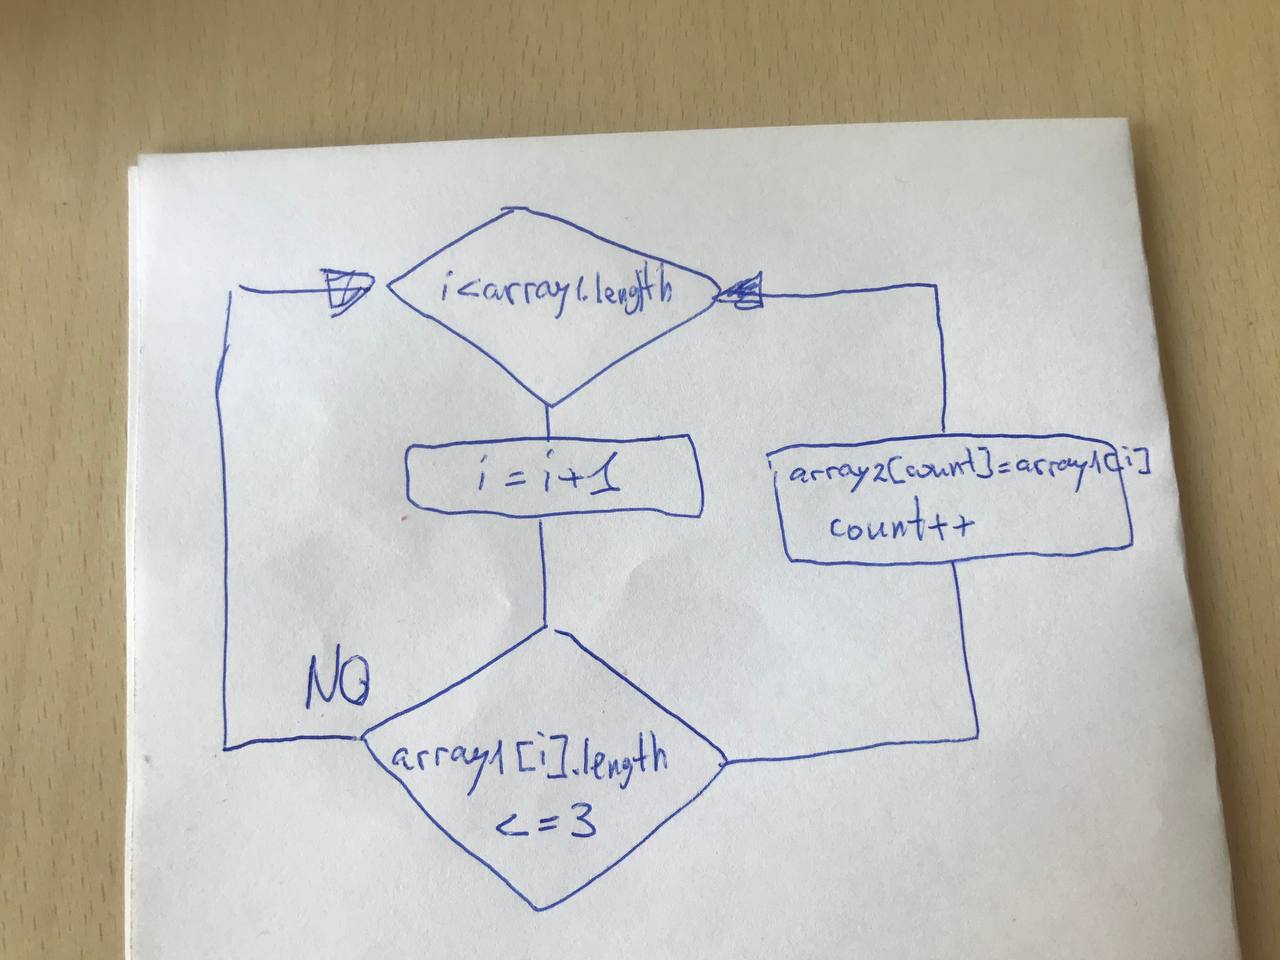 i<array1.length
i = i+1
array2[count]=array1[i]
count++
NO
array1[i].length
<=3